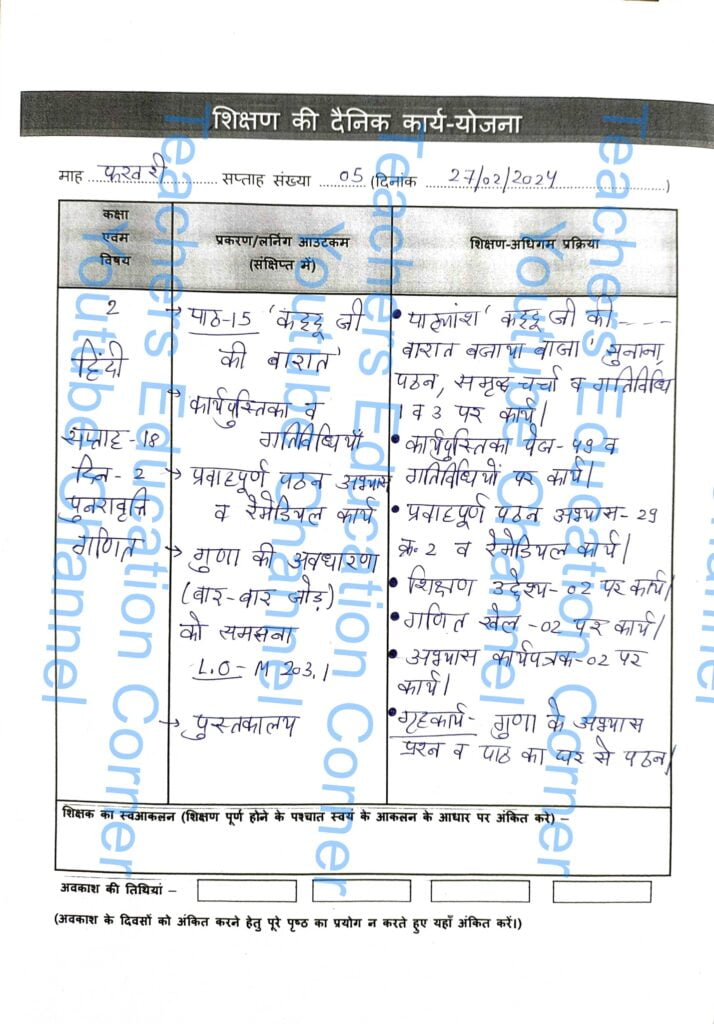 शिक्षण की दैनिक कार्य-योजना
माह फरवरी सप्ताह संख्या 05 (दिनांक 27/02/2024)
कक्षा
एवम
विषय
प्रकरण/लर्निंग आउटकम
(संक्षिप्त में)
शिक्षण-अधिगम प्रक्रिया
2
हिंदी
सप्ताह-18
दिन-2
पुनरावृत्ति
गणित
→ पाठ-15 'कद्दू जी
की बारात'
→ कार्यपुस्तिका व
गतिविधियाँ
→ प्रवाहपूर्ण पठन अभ्यास
व रैमेडियल कार्य
→ गुणा की अवधारणा
(बार-बार जोड़)
को समझना
L.O- M 203.1
→ पुस्तकालय
• पाठ्यांश 'कद्दू जी की ----
बारात बजाया बाजा' सुनाना,
पठन, समूह चर्चा व गतिविधि
1 व 3 पर कार्य।
• कार्यपुस्तिका पेज-49 व
गतिविधियों पर कार्य।
• प्रवाहपूर्ण पठन अभ्यास-29
क्र.2 व रैमेडियल कार्य।
• शिक्षण उद्देश्य-02 पर कार्य।
• गणित खेल-02 पर कार्य।
• अभ्यास कार्यपत्रक-02 पर
कार्य।
• गृहकार्य- गुणा के अभ्यास
प्रश्न व पाठ का घर से पठन।
शिक्षक का स्वआकलन (शिक्षण पूर्ण होने के पश्चात स्वयं के आकलन के आधार पर अंकित करें) –
अवकाश की तिथियां –
(अवकाश के दिवसों को अंकित करने हेतु पूरे पृष्ठ का प्रयोग न करते हुए यहाँ अंकित करें।)
Teachers Education Corner
Youtube Channel
Teachers Education Corner
Youtube Channel
Teachers Education Corner
Youtube Channel